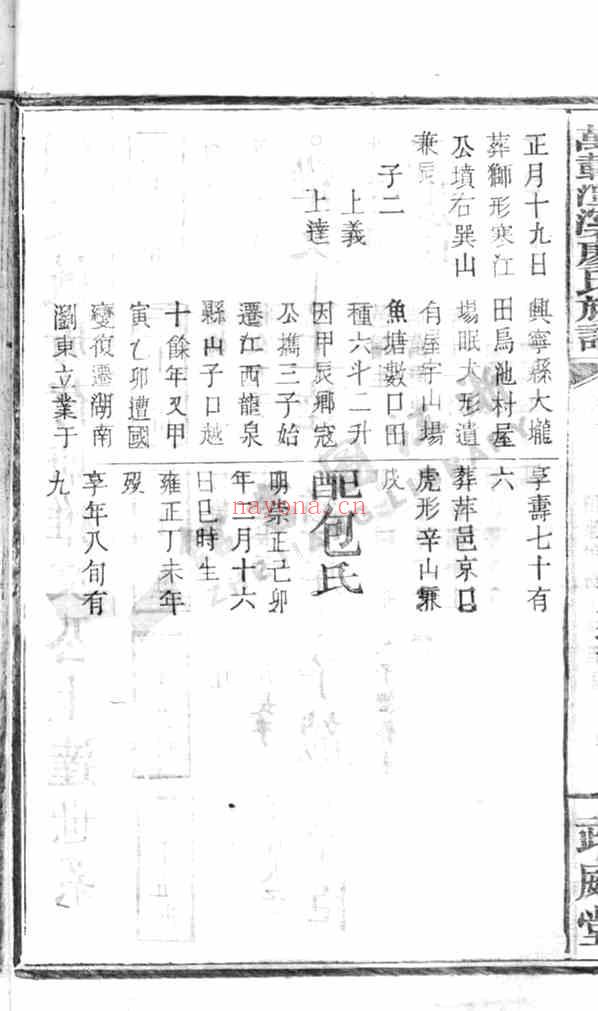 正月十九日
葬獅形寒江
公墳右巽山
兼辰
子二
上義
上達
興寧縣大壠
田烏池村屋
場眠犬形遺
有屋宇山場
魚塘數口田
種六斗二升
因甲辰鄉寇
公攜三子始
遷江西龍泉
縣山子口越
十餘年又甲
寅乙卯遭國
變復遷湖南
瀏東立業于
享壽七十有
六
葬萍邑京口
虎形辛山兼
戌
配包氏
明崇正己卯
年二月十六
日巳時生
雍正丁未年
歿
享年八旬有
九
廖氏族譜
威堂
nayona.cn